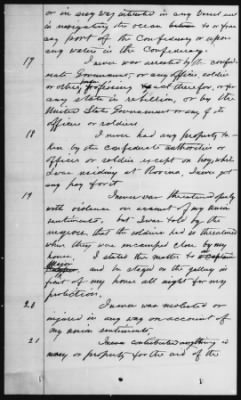 or in any way interested in any vessel used
in navigating the ocean between to or from
any port of the Confederacy or upon
any waters in the Confederacy.
17 I never was arrested by the confed-
erate Government, or any officer, soldier
or other professing to act therefor, or for
any state in rebellion, or by the
United States Government or any of its
officers or soldiers
18 I never had any property ta-
ken by the confederate authorities or
officers or soldiers except one hog, while
I was residing at Rovina, I never got
any pay for it
19 I never was threatened
with violence on account of my union
sentiments, but I was told by the
negroes, that the soldiers had so threatened
when they was encamped close by my
house, I stated this matter to
and he staged on the gallery in
front of my house all night for my
protection.
20 I never was molested or
injured in any way on account of
my union sentiments,
21 I never contributed anything in
money or property for the aid of the